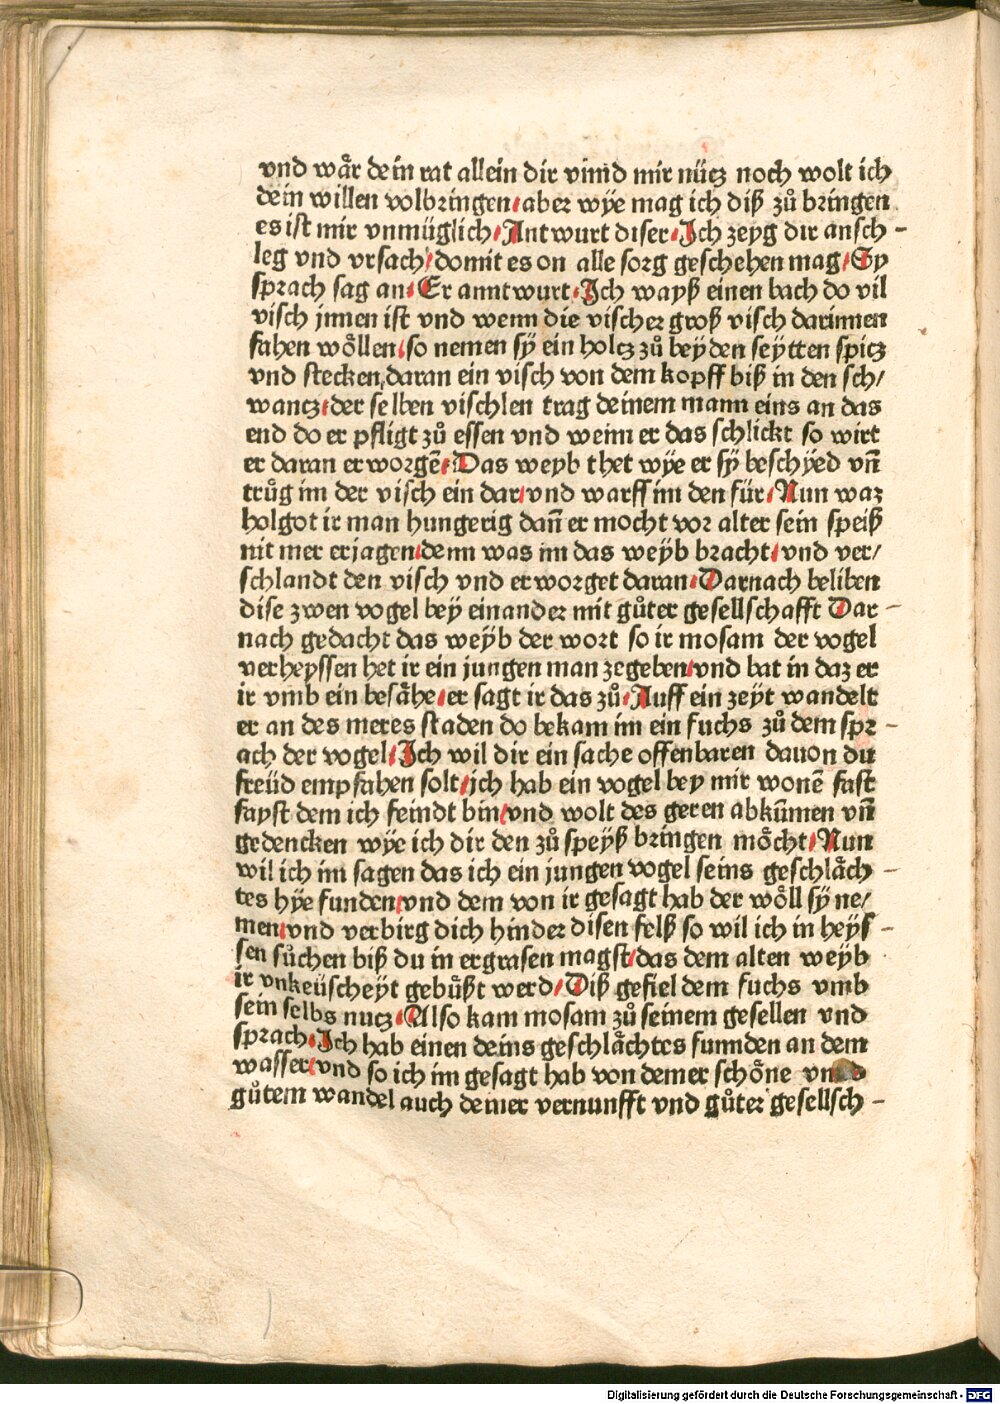 vnd wår dein rat allein dir vnnd mir nücz noch wolt ich
dein willen volbringen/aber wÿe mag ich diß zů bringen
es ist mir vnmüglich/Antwurt diser/Ich zeyg dir ansch-
leg vnd vrsach/domit es on alle sorg geschehen mag/Sy
sprach sag an/Er anntwurt/Ich wayß einen bach do vil
visch jnnen ist vnd wenn die vischer groß visch darinnen
fahen wo̊llen/so nemen sÿ ein holcz zů beyden seÿtten spicz
vnd stecken,daran ein visch von dem kopff biß in den sch/
wancz/der selben vischlen trag deinem mann eins an das
end do er pfligt zů essen vnd wenn er das schlickt so wirt
er daran erworgē/Das weyb thet wÿe er sÿ beschÿed vn̄
trůg im der visch ein dar/vnd warff im den für/Nun waz
holgot ir man hungerig dan̄ er mocht vor alter sein speiß
nit mer erjagen/denn was im das weÿb bracht/vnd ver/
schlandt den visch vnd erworget daran/Darnach beliben
dise zwen vogel beÿ einander mit gůter gesellschafft Dar-
nach gedacht das weÿb der wort so ir mosam der vogel
verheyssen het ir ein jungen man zegeben/vnd bat in daz er
ir vmb ein besåhe/er sagt ir das zů/Auff ein zeyt wandelt
er an des meres staden do bekam im ein fuchs zů dem spr-
ach der vogel/Ich wil dir ein sache offenbaren dauon du
freüd empfahen solt/ich hab ein vogel bey mir wonē fast
fayst dem ich feindt bin/vnd wolt des geren abkümen vn̄
gedencken wÿe ich dir den zů speÿß bringen mo̊cht/Nun
wil ich im sagen das ich ein jungen vogel seins geschlåch-
tes hÿe funden/vnd dem von ir gesagt hab der wo̊ll sÿ ne/
men/vnd verbirg dich hinder disen felß so wil ich in heÿs-
sen sůchen biß du in ergrasen magst/das dem alten weyb
ir vnkeüscheÿt gebůßt werd/Diß gefiel dem fuchs vmb
sein selbs nucz/Also kam mosam zů seinem gesellen vnd
sprach/Ich hab einen deins geschlåchtes funnden an dem
wasser/vnd so ich im gesagt hab von deiner scho̊ne vnnd
gůtem wandel auch deiner vernunfft vnd gůter gesellsch-
Digitalisierung gefördert durch die Deutsche Forschungsgemeinschaft - DFG